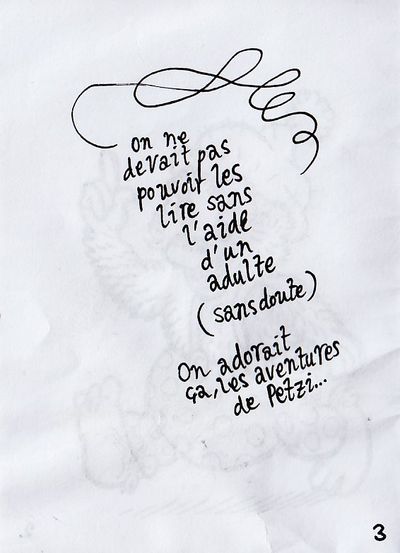 on ne
devait pas
pouvoir les
lire sans
l'aide
d'un
adulte
(sans doute)
On adorait
ça, les aventures
de Petzi...
3